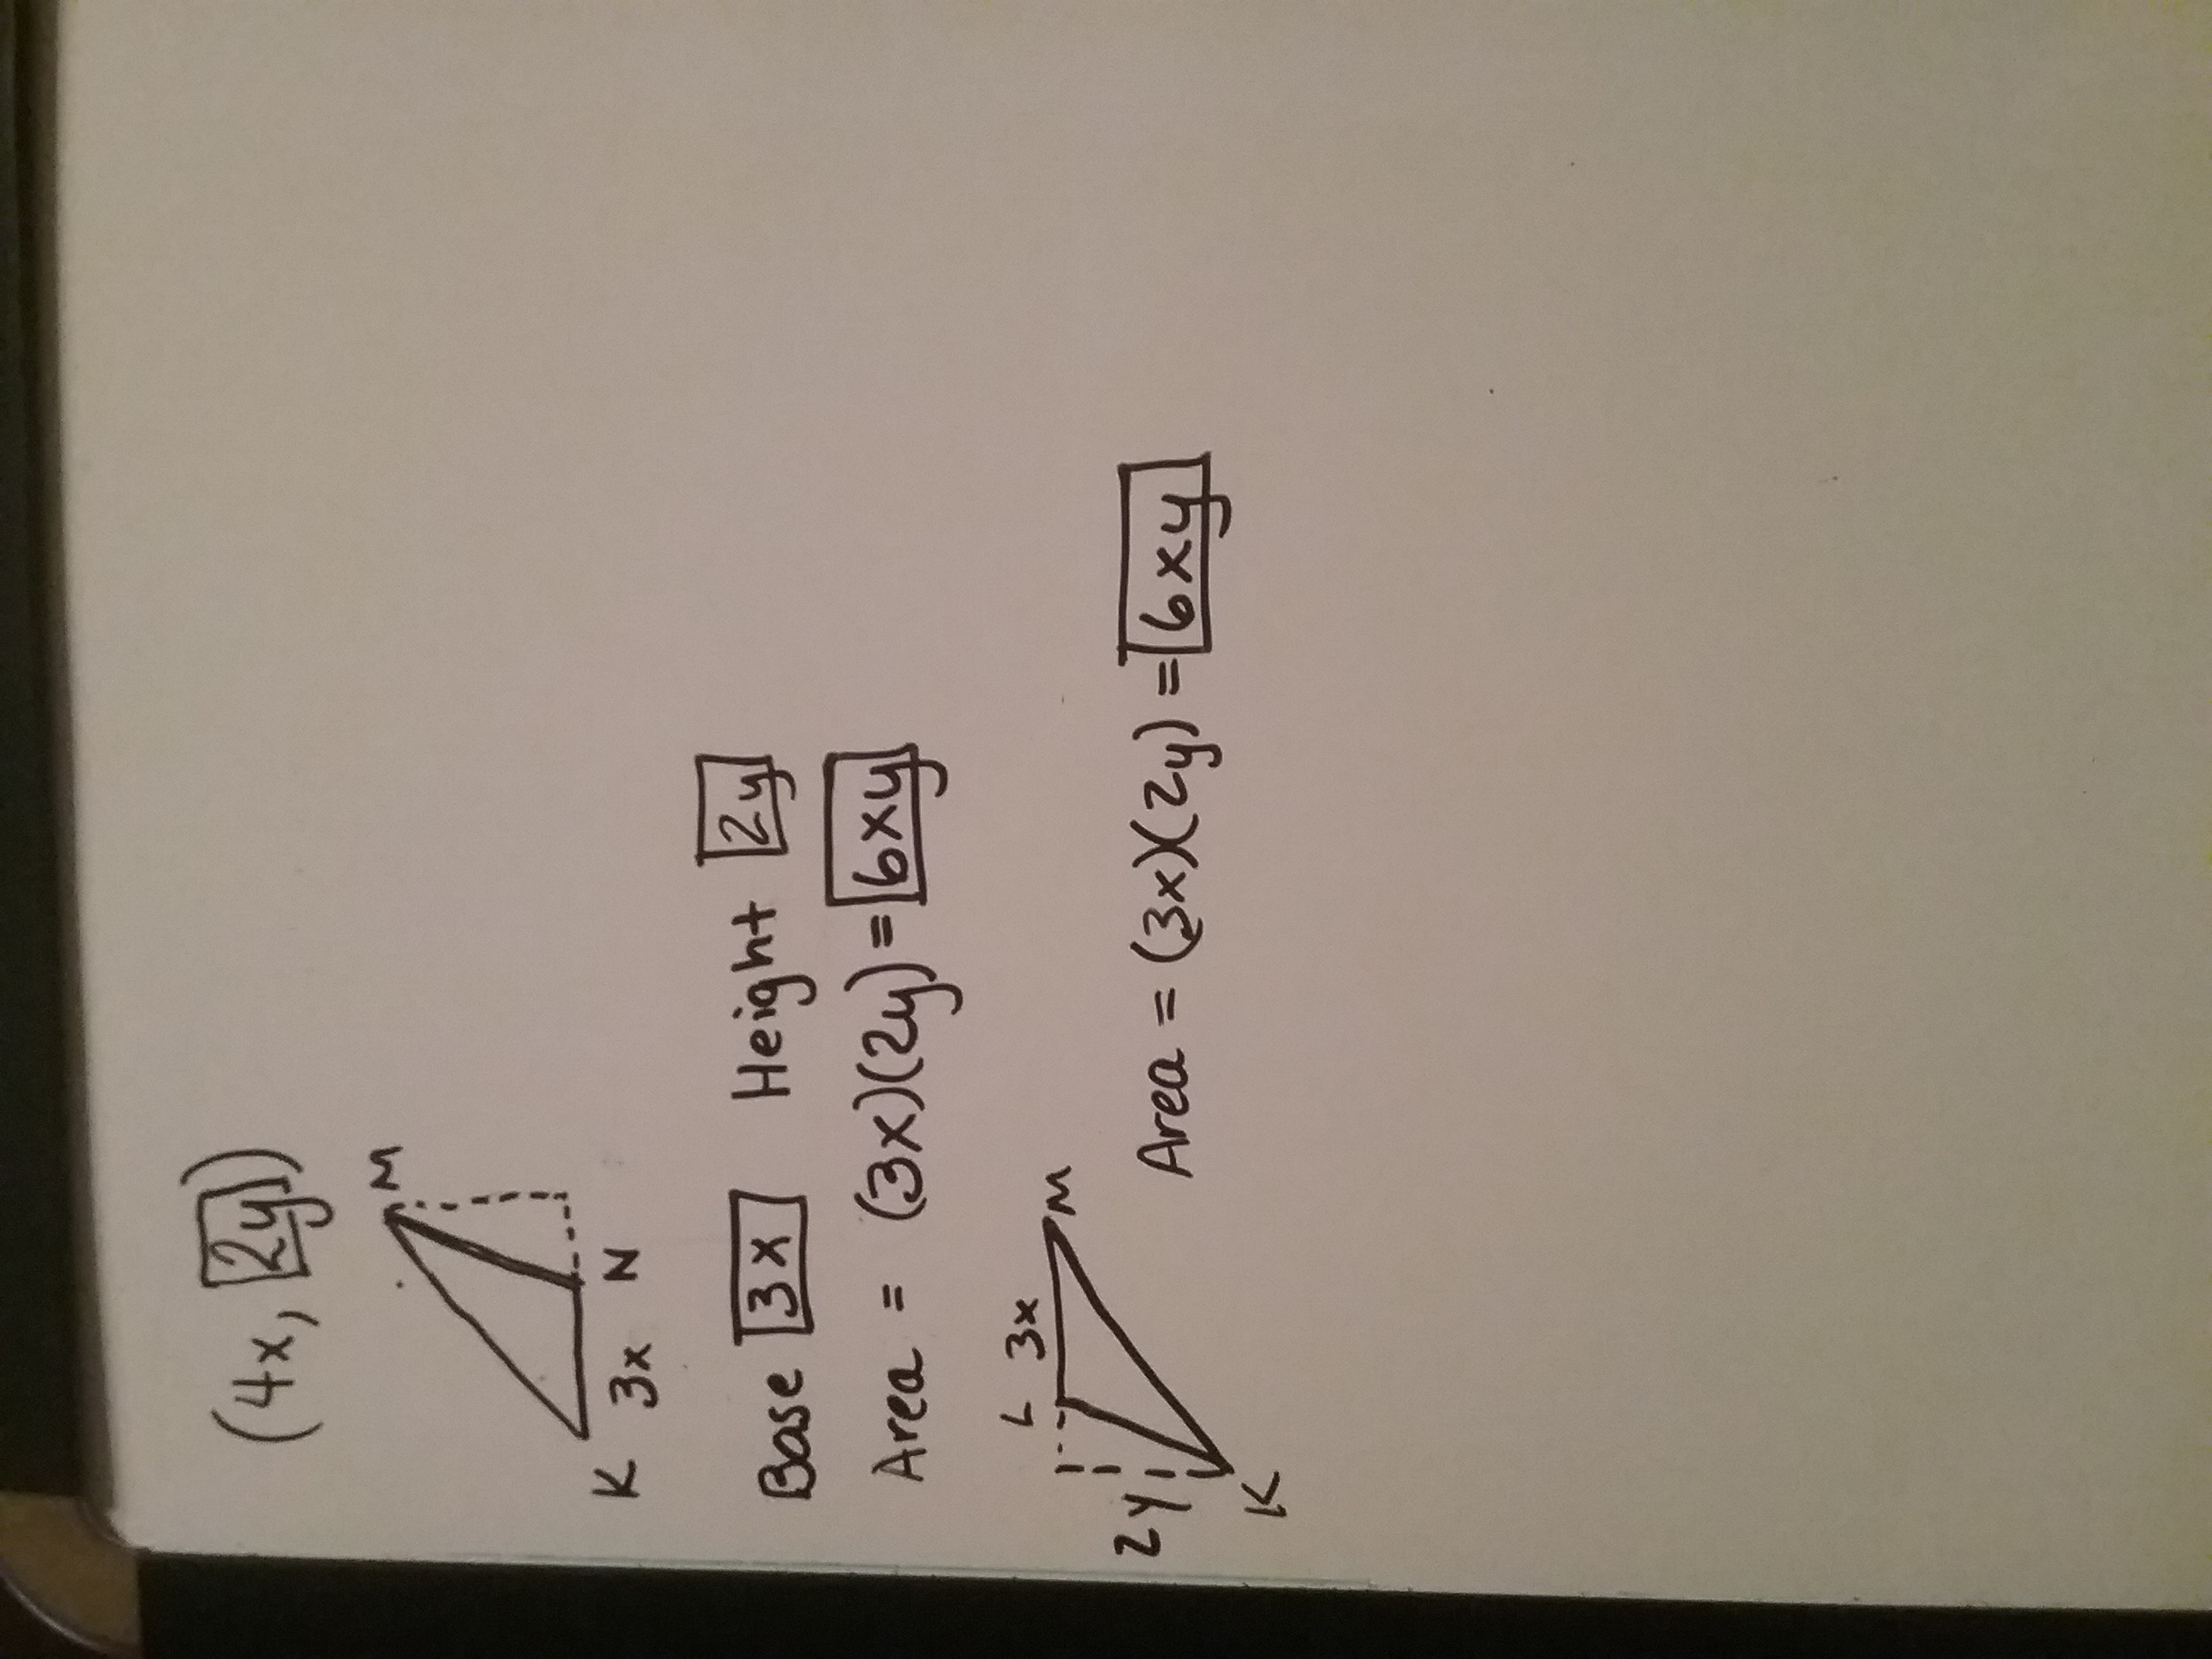 (4x, 2y)
M
K 3x N
Base 3x Height 2y
Area = (3x)(2y) = 6xy
L 3x M
2y
K
Area = (3x)(2y) = 6xy